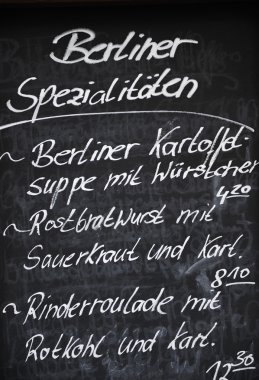 Berliner
Spezialitäten
~ Berliner Kartoffel-
suppe mit Würstchen
4 20
~ Rostbratwurst mit
Sauerkraut und Kart.
8 10
~ Rinderroulade mit
Rotkohl und Kart.
12 30